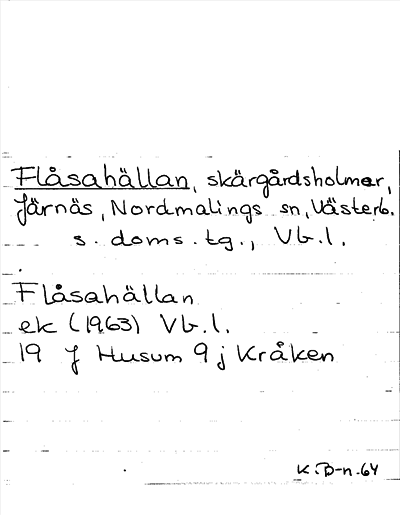 Flåsahällan, skärgårdsholmar,
Järnäs, Nordmalings sn, Västerb.
s. doms. tg., Vb. l.
Flåsahällan
ek (1963) Vb. l.
19 J Husum 9 j Kråken
K. B-n. 64